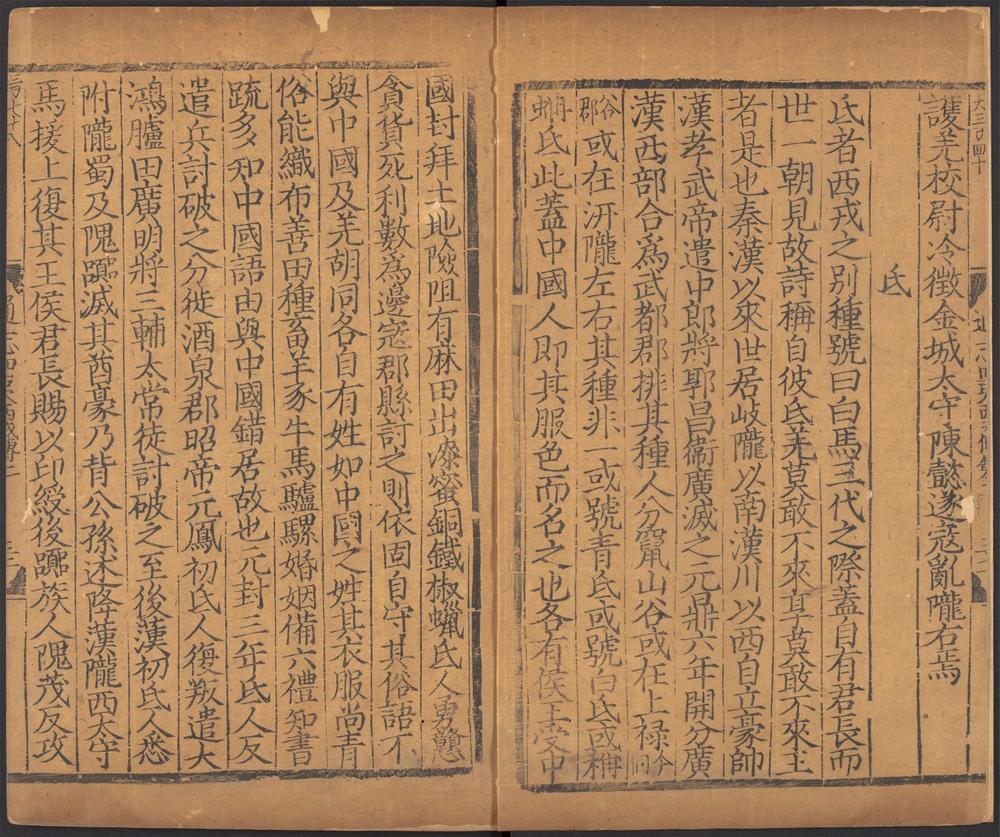 護羌校尉冷徵金城太守陳懿遂寇亂隴右焉
氐
氐者西戎之別種號曰白馬三代之際蓋自有君長而
世一朝見故詩稱自彼氐羌莫敢不來享莫敢不來王
者是也秦漢以來世居岐隴以南漢川以西自立豪帥
漢孝武帝遣中郎將郭昌衛廣滅之元鼎六年開分廣
漢西部合為武都郡排其種人分竄山谷或在上祿今同
谷郡或在汧隴左右其種非一或號青氐或號白氐或稱
冉蚺氐此蓋中國人即其服色而名之也各有侯王受中
國封拜土地險阻有麻田出漆蜜銅鐵椒蠟氐人勇戇
貪貨死利數為邊寇郡縣討之則依固自守其俗語不
與中國及羌胡同各自有姓如中國之姓其衣服尚青
俗能織布善田種畜羊豕牛馬驢騾婚姻備六禮知書
疏多知中國語由與中國錯居故也元封三年氐人反
遣兵討破之分徙酒泉郡昭帝元鳳初氐人復叛遣大
鴻臚田廣明將三輔太常徒討破之至後漢初氐人悉
附隴蜀及隗囂滅其酋豪乃背公孫述降漢隴西太守
馬援上復其王侯君長賜以印綬後囂族人隗茂反攻